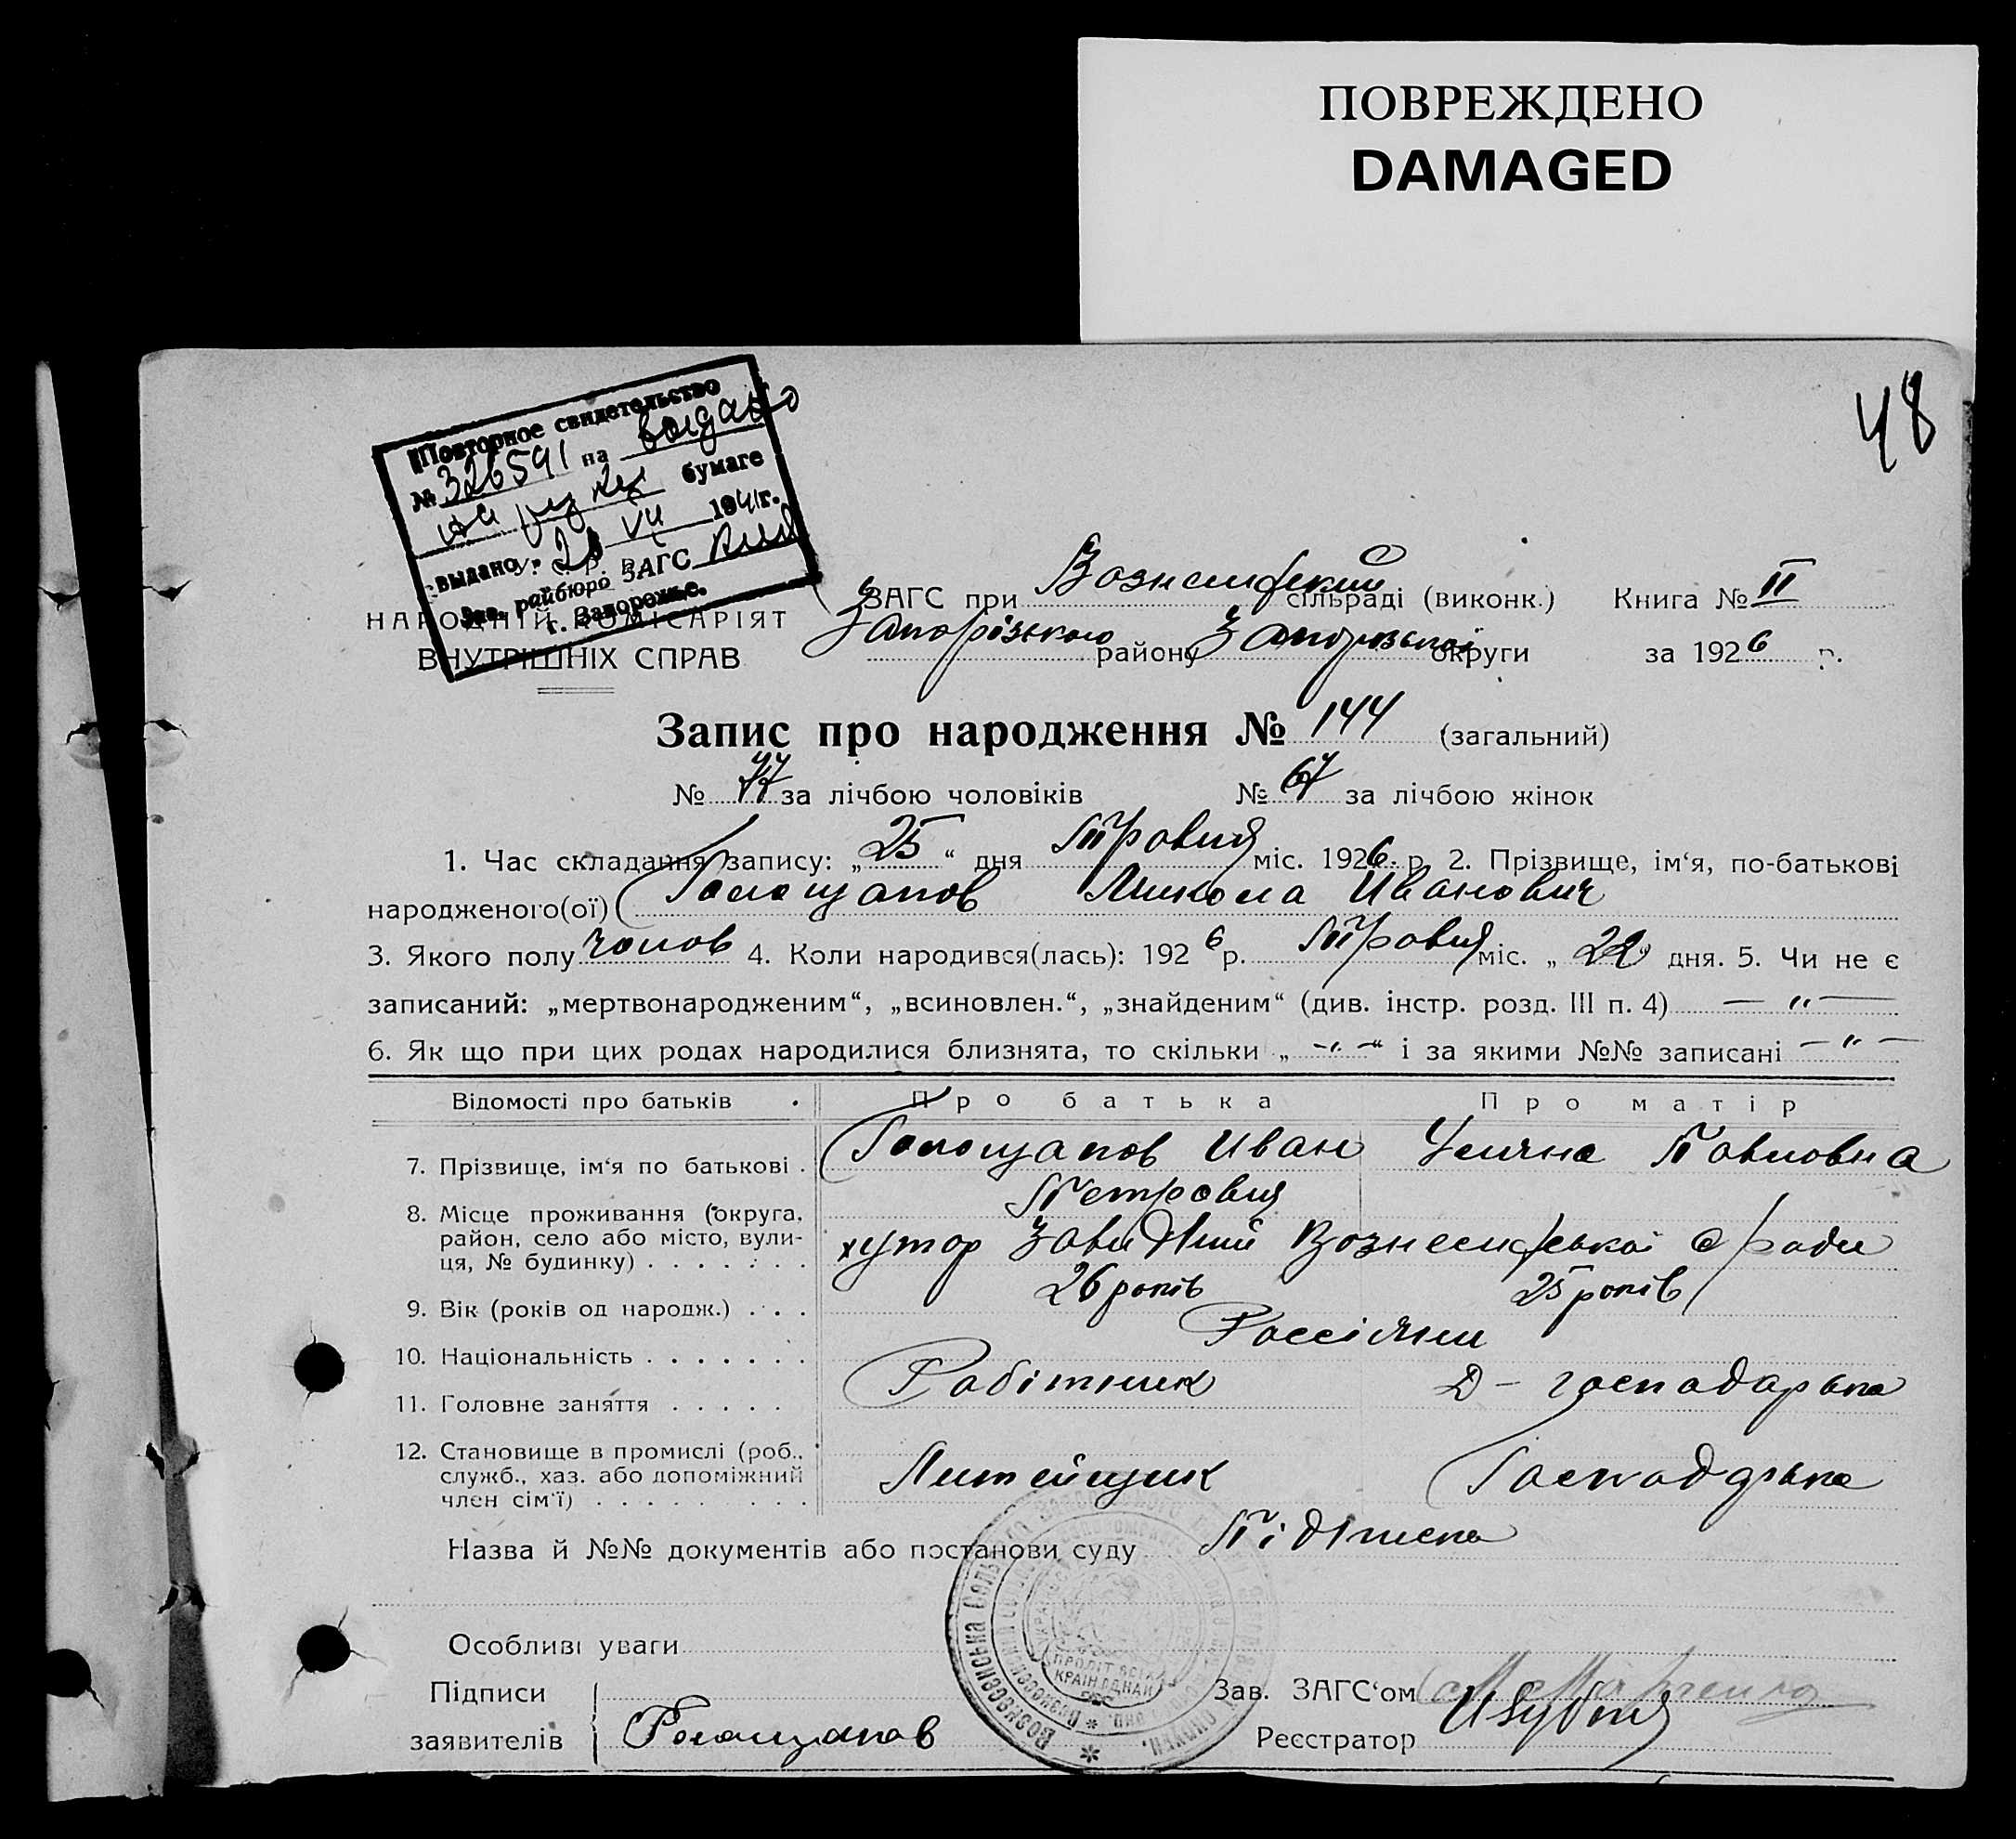 ПОВРЕЖДЕНО
DAMAGED
48
Повторное свидетельство
№ 326591 на
бумаге
выдано 2 VII 1941г.
Зав. райбюро ЗАГС
г. Запорожье.
У. С. Р. Р.
НАРОДНІЙ КОМІСАРІЯТ
ВНУТРІШНІХ СПРАВ
ЗАГС при Вознесенській сільраді (виконк.) Книга № II
Запорізького району Запорізької округи за 1926 р.
Запис про народження № 144 (загальний)
№ 77 за лічбою чоловіків № 67 за лічбою жінок
1. Час складання запису: „25“ дня Травня міс. 1926 р. 2. Прізвище, ім‘я, по-батькові
народженого(ої) Голощапов Микола Иванович
3. Якого полу чолов 4. Коли народився(лась): 1926 р. Травня міс. „22“ дня. 5. Чи не є
записаний: „мертвонародженим“, „всиновлен.“, „знайденим“ (див. інстр. розд. III п. 4) — „ —
6. Як що при цих родах народилися близнята, то скільки „ - „ - “ і за якими №№ записані — „ —
Відомості про батьків Про батька Про матір
7. Прізвище, ім‘я по батькові . Голощапов Иван Петровия Улична Павловна
8. Місце проживання (округа,
район, село або місто, вули-
ця, № будинку) . . . . . . . хутор Вознесенської с/ради
9. Вік (років од народж.) . . . 26 років 25 років
10. Національність . . . . . . . Россіяни
11. Головне заняття . . . . . Робітник Д - господарька
12. Становище в промислі (роб.,
служб., хаз. або допоміжний
член сім‘ї) . . . . . . . . . Литейщик Господарька
Назва й №№ документів або постанови суду Підписка
Особливі уваги
Підписи
заявителів Голощапов
Зав. ЗАГС‘ом
Реєстратор
ПРОЛІТ. ВСІХ
КРАЇН ЄДНАЙ